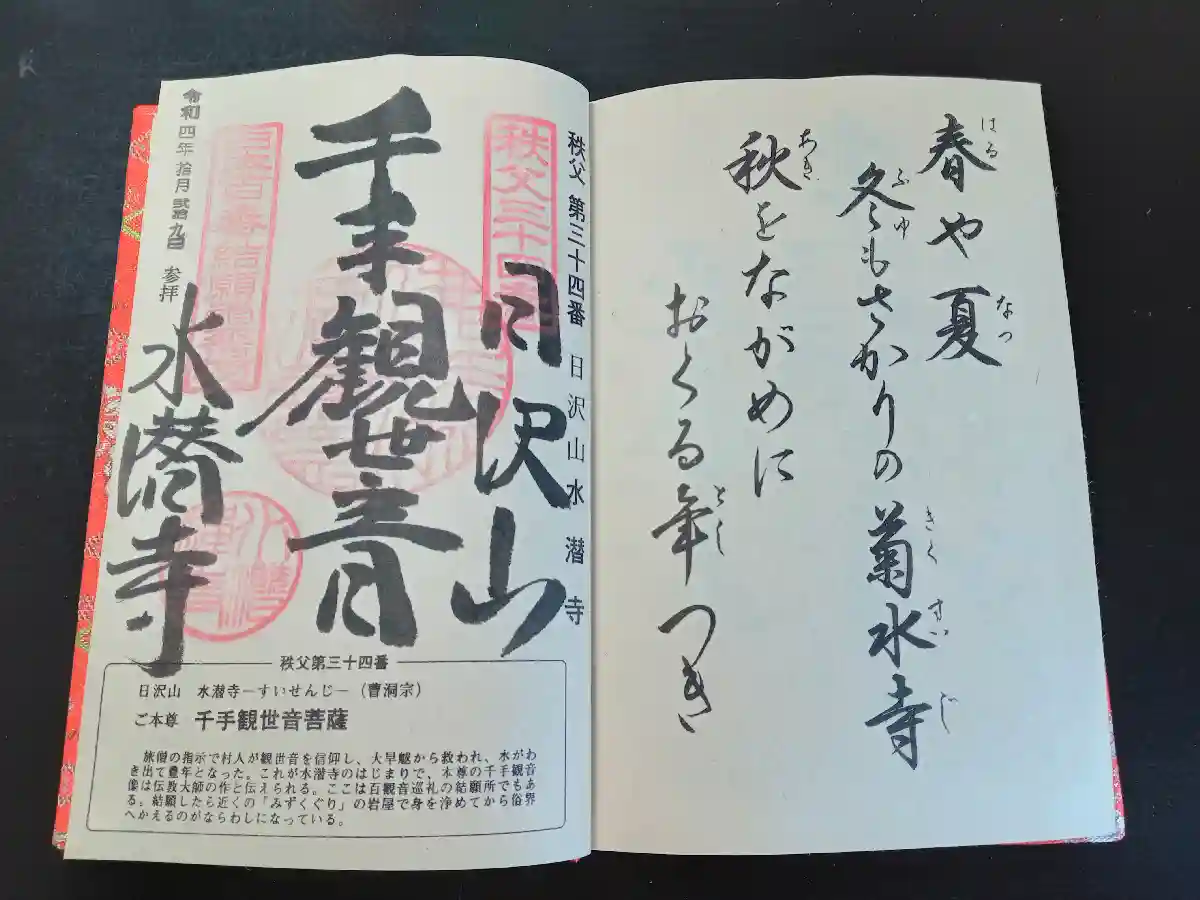 春や夏
はる
なつ
冬もさかりの菊水寺
ふゆ
きくすいじ
秋をながめに
あき
おくる年つき
とし
秩父第三十四番 日沢山水潜寺
秩父三十四
日沢山
千手観世音
水潜寺
令和四年拾月弐拾九日 参拝
秩父第三十四番
日沢山 水潜寺ーすいせんじー(曹洞宗)
ご本尊 千手観世音菩薩
旅僧の指示で村人が観世音を信仰し、大旱魃から救われ、水がわ
き出て豊年となった。これが水潜寺のはじまりで、本尊の千手観音
像は伝教大師の作と伝えられる。ここは百観音巡礼の結願所でもあ
る。結願したら近くの「みずくぐり」の岩屋で身を浄めてから俗界
へかえるのがならわしになっている。